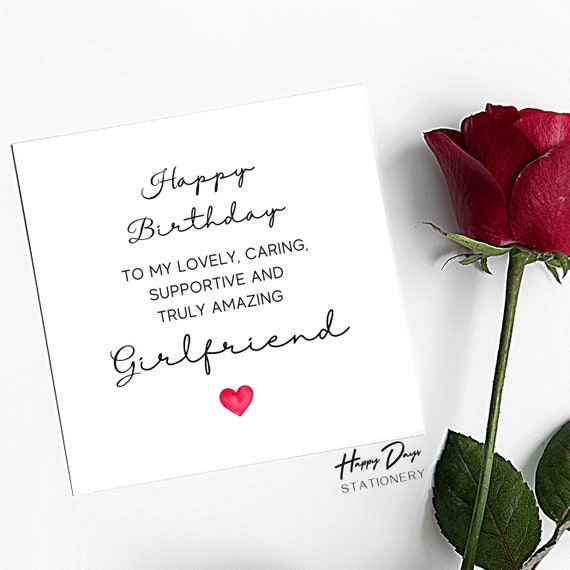 Happy
Birthday
TO MY LOVELY, CARING,
SUPPORTIVE AND
TRULY AMAZING
Girlfriend
Happy Days
STATIONERY